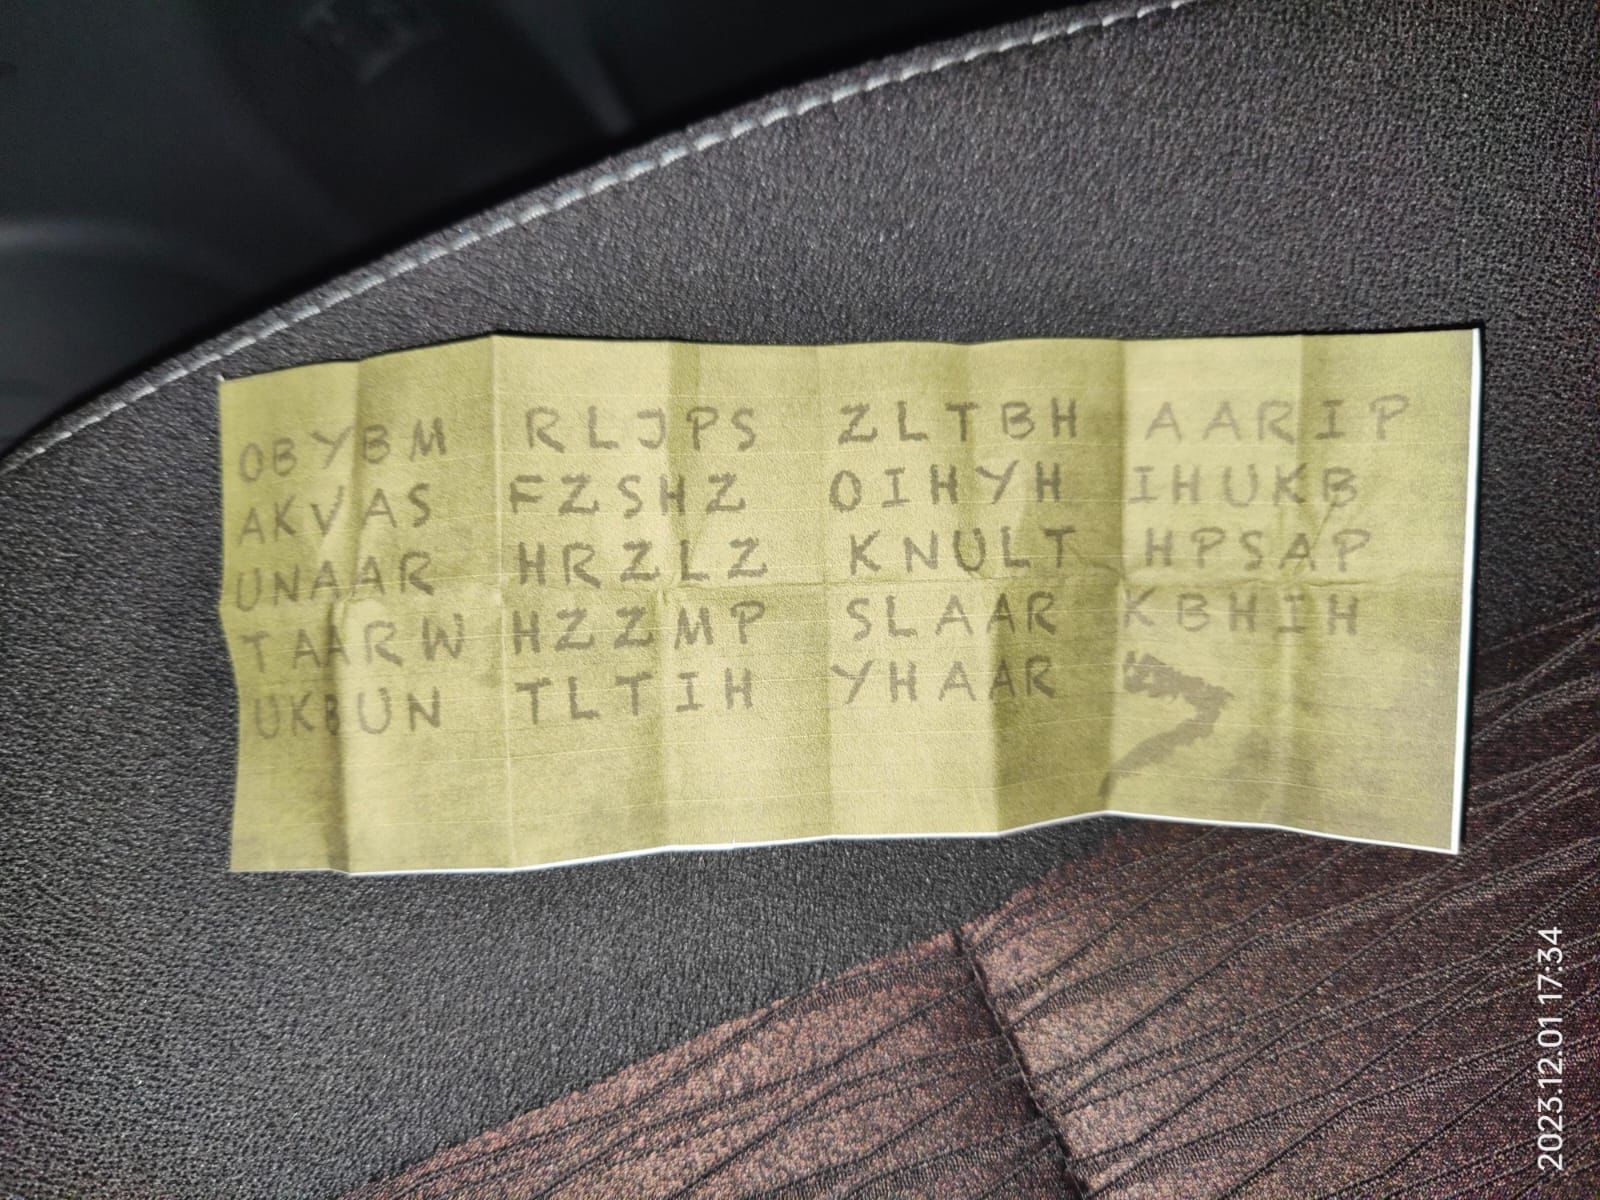 OBYBM RLJPS ZLTBH AARIP
AKVAS FZSHZ OIHYH IHUKB
UNAAR HRZLZ KNULT HPSAP
TAARW HZZMP SLAAR KBHIH
UKBUN TLTIH YHAAR
2023.12.01 17:34